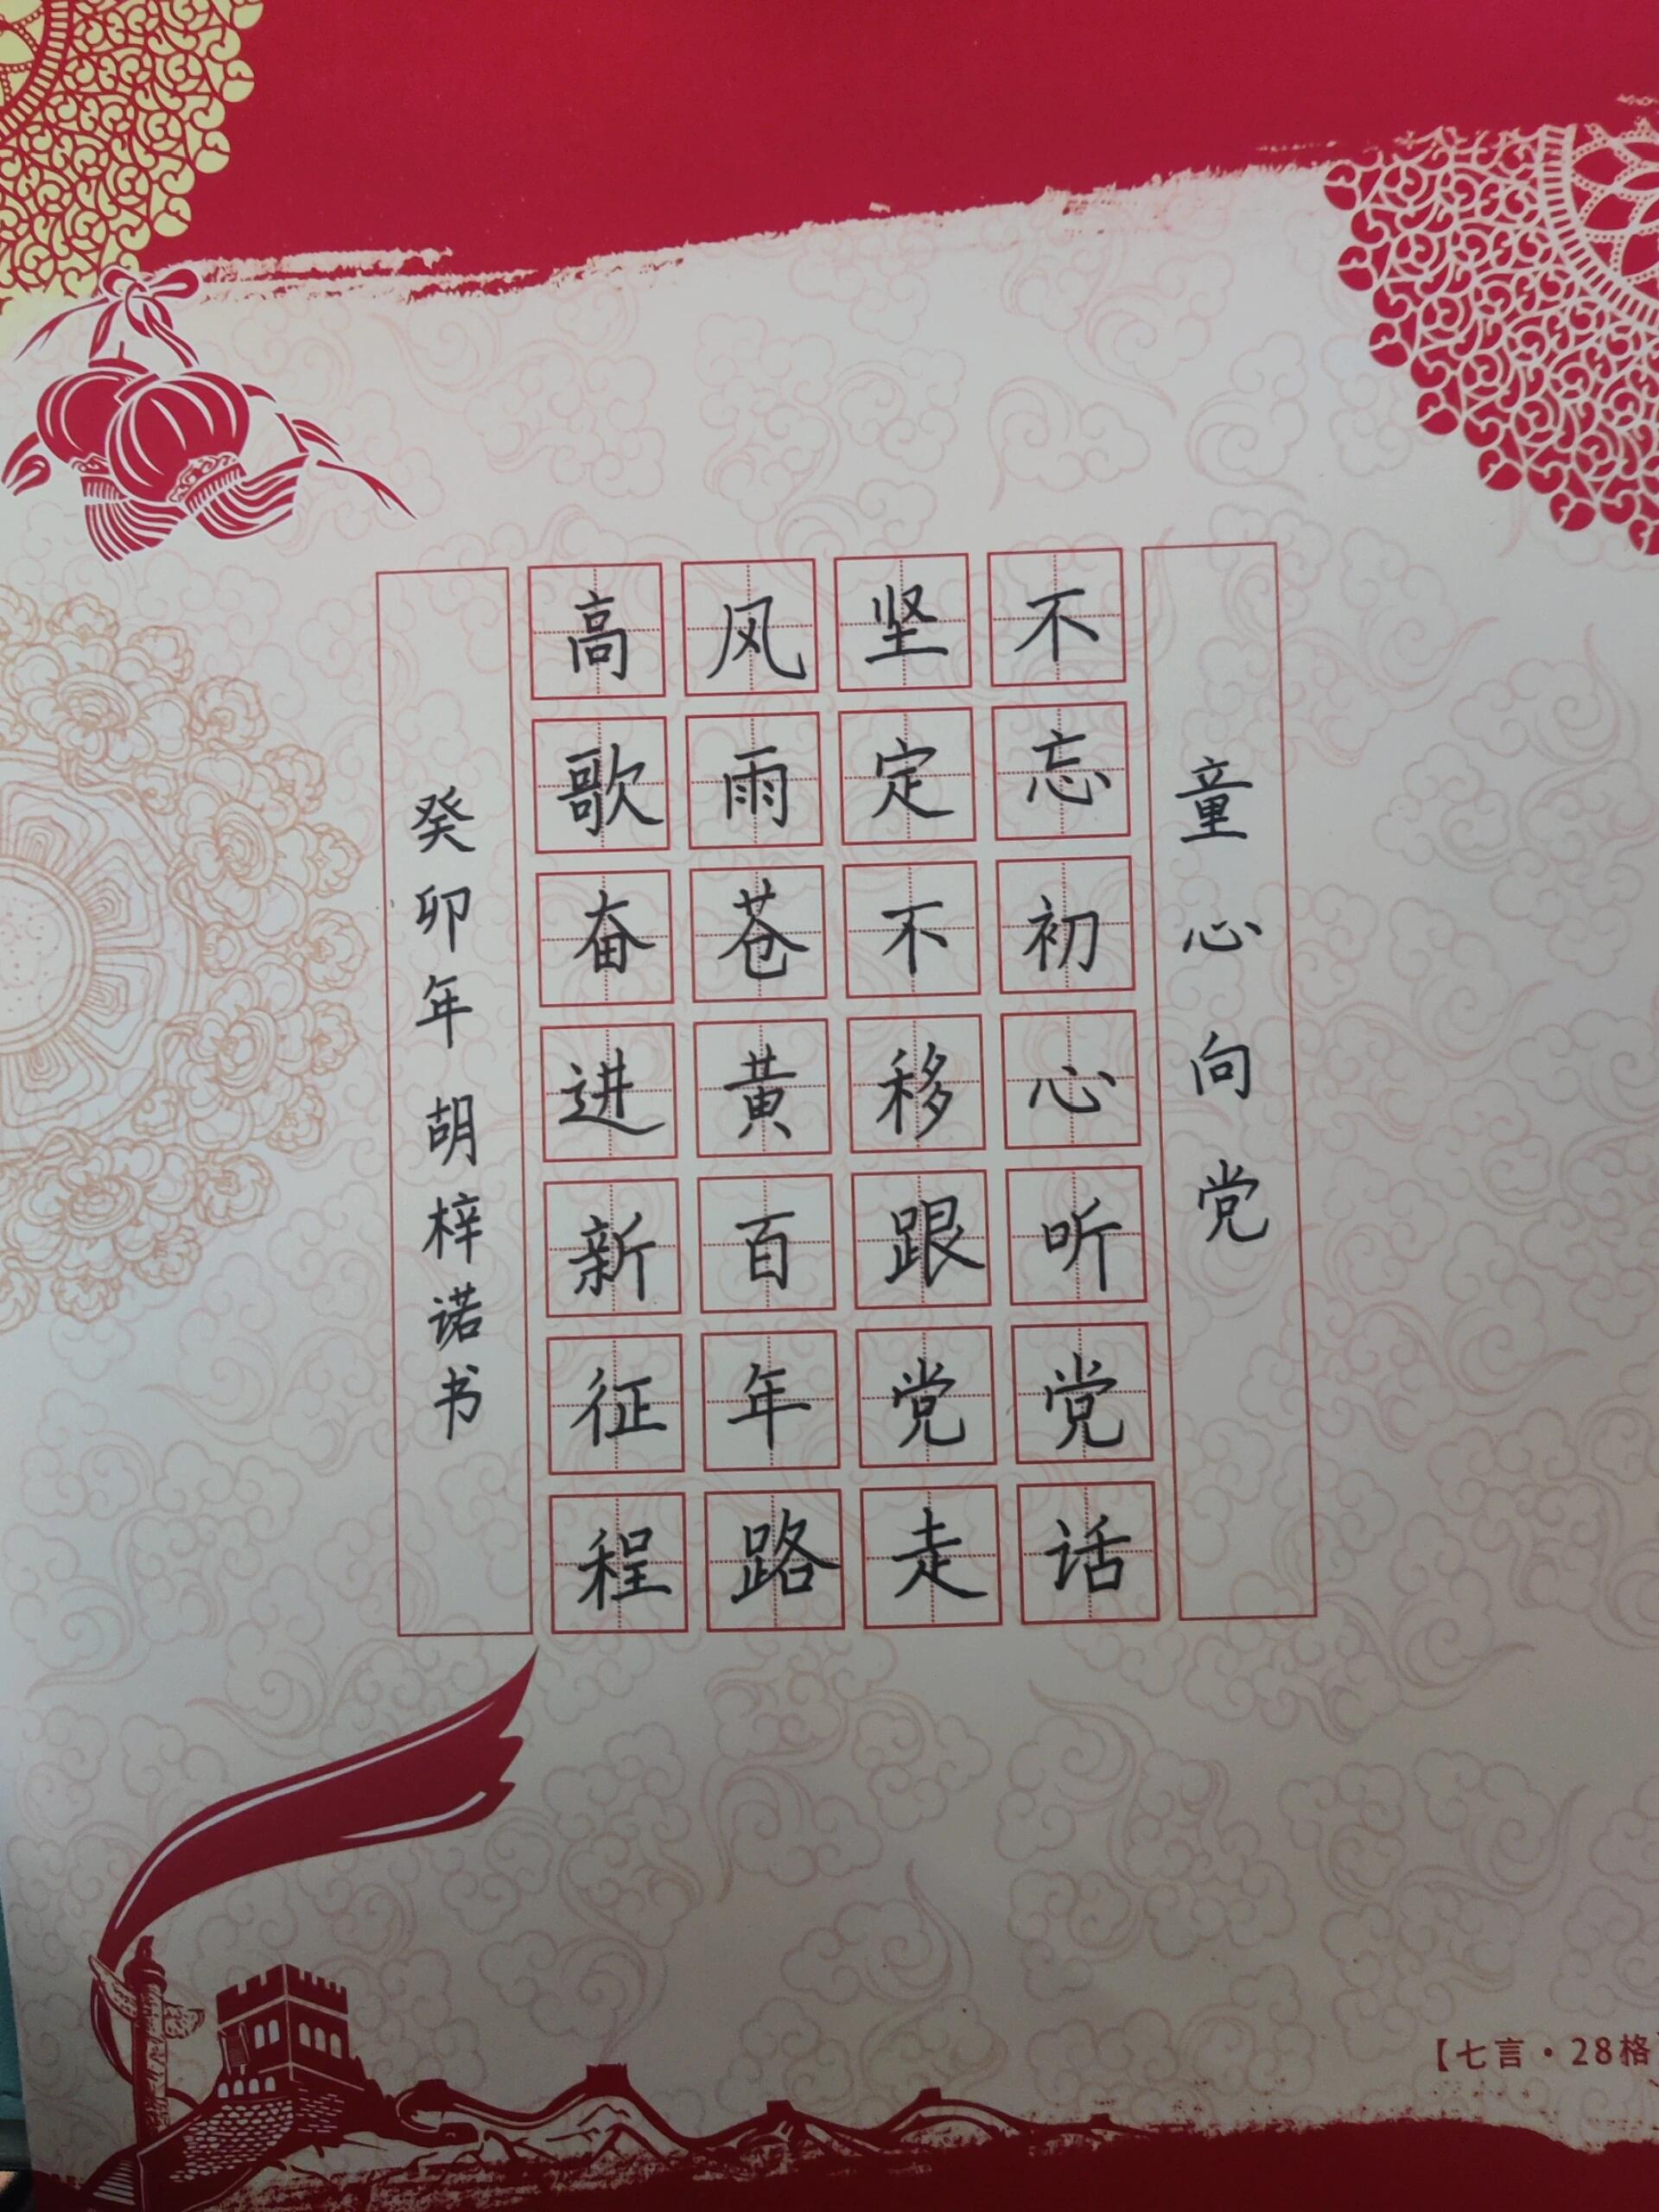 童心向党
不忘初心听党话
坚定不移跟党走
风雨苍黄百年路
高歌奋进新征程
癸卯年 胡梓诺书
【七言·28格